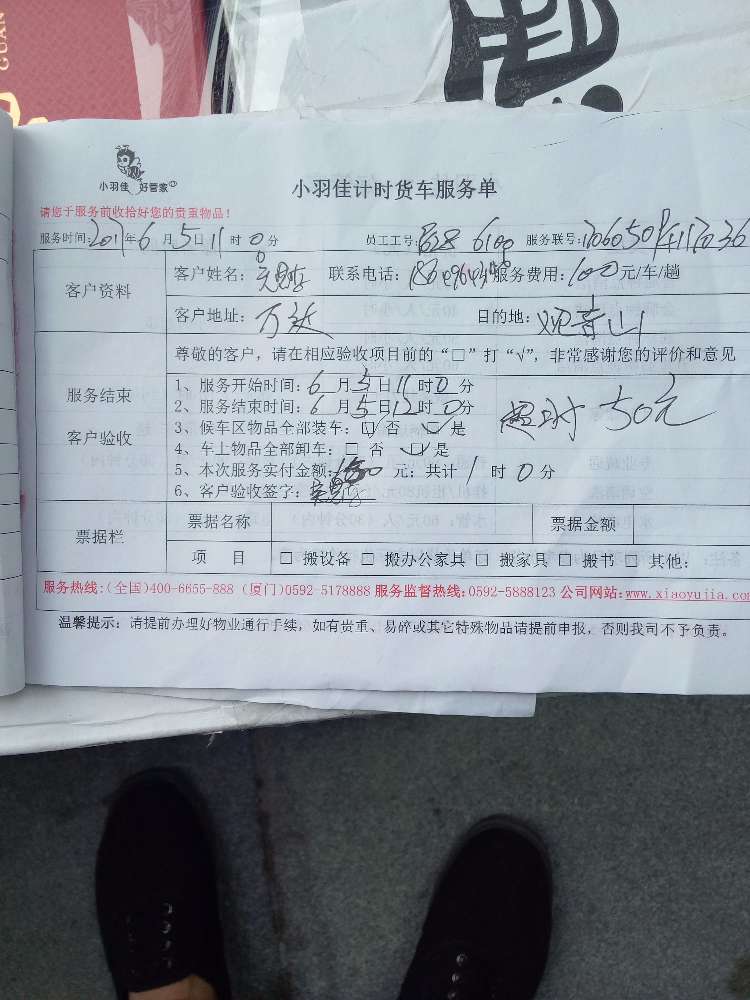 GUAN
小羽佳 好管家
小羽佳计时货车服务单
请您于服务前收拾好您的贵重物品！
服务时间:2017年6月5日11时00分 员工工号: 6100 服务联号:
客户资料
客户姓名: 联系电话: 服务费用:100元/车/趟
客户地址: 目的地:观音山
尊敬的客户，请在相应验收项目前的“□”打“√”，非常感谢您的评价和意见
服务结束
客户验收
1、服务开始时间:6月5日11时0分
2、服务结束时间:6月5日12时0分
3、候车区物品全部装车:□否 是
4、车上物品全部卸车:□否 是
5、本次服务实付金额: 元；共计1时0分
6、客户验收签字:
超时 50元
票据栏
票据名称 票据金额
项 目 □搬设备 □搬办公家具 □搬家具 □搬书 □其他:
服务热线:(全国)400-6655-888 (厦门)0592-5178888 服务监督热线:0592-5888123 公司网站:www.xiaoyujia.com
温馨提示: 请提前办理好物业通行手续，如有贵重、易碎或其它特殊物品请提前申报，否则我司不予负责。